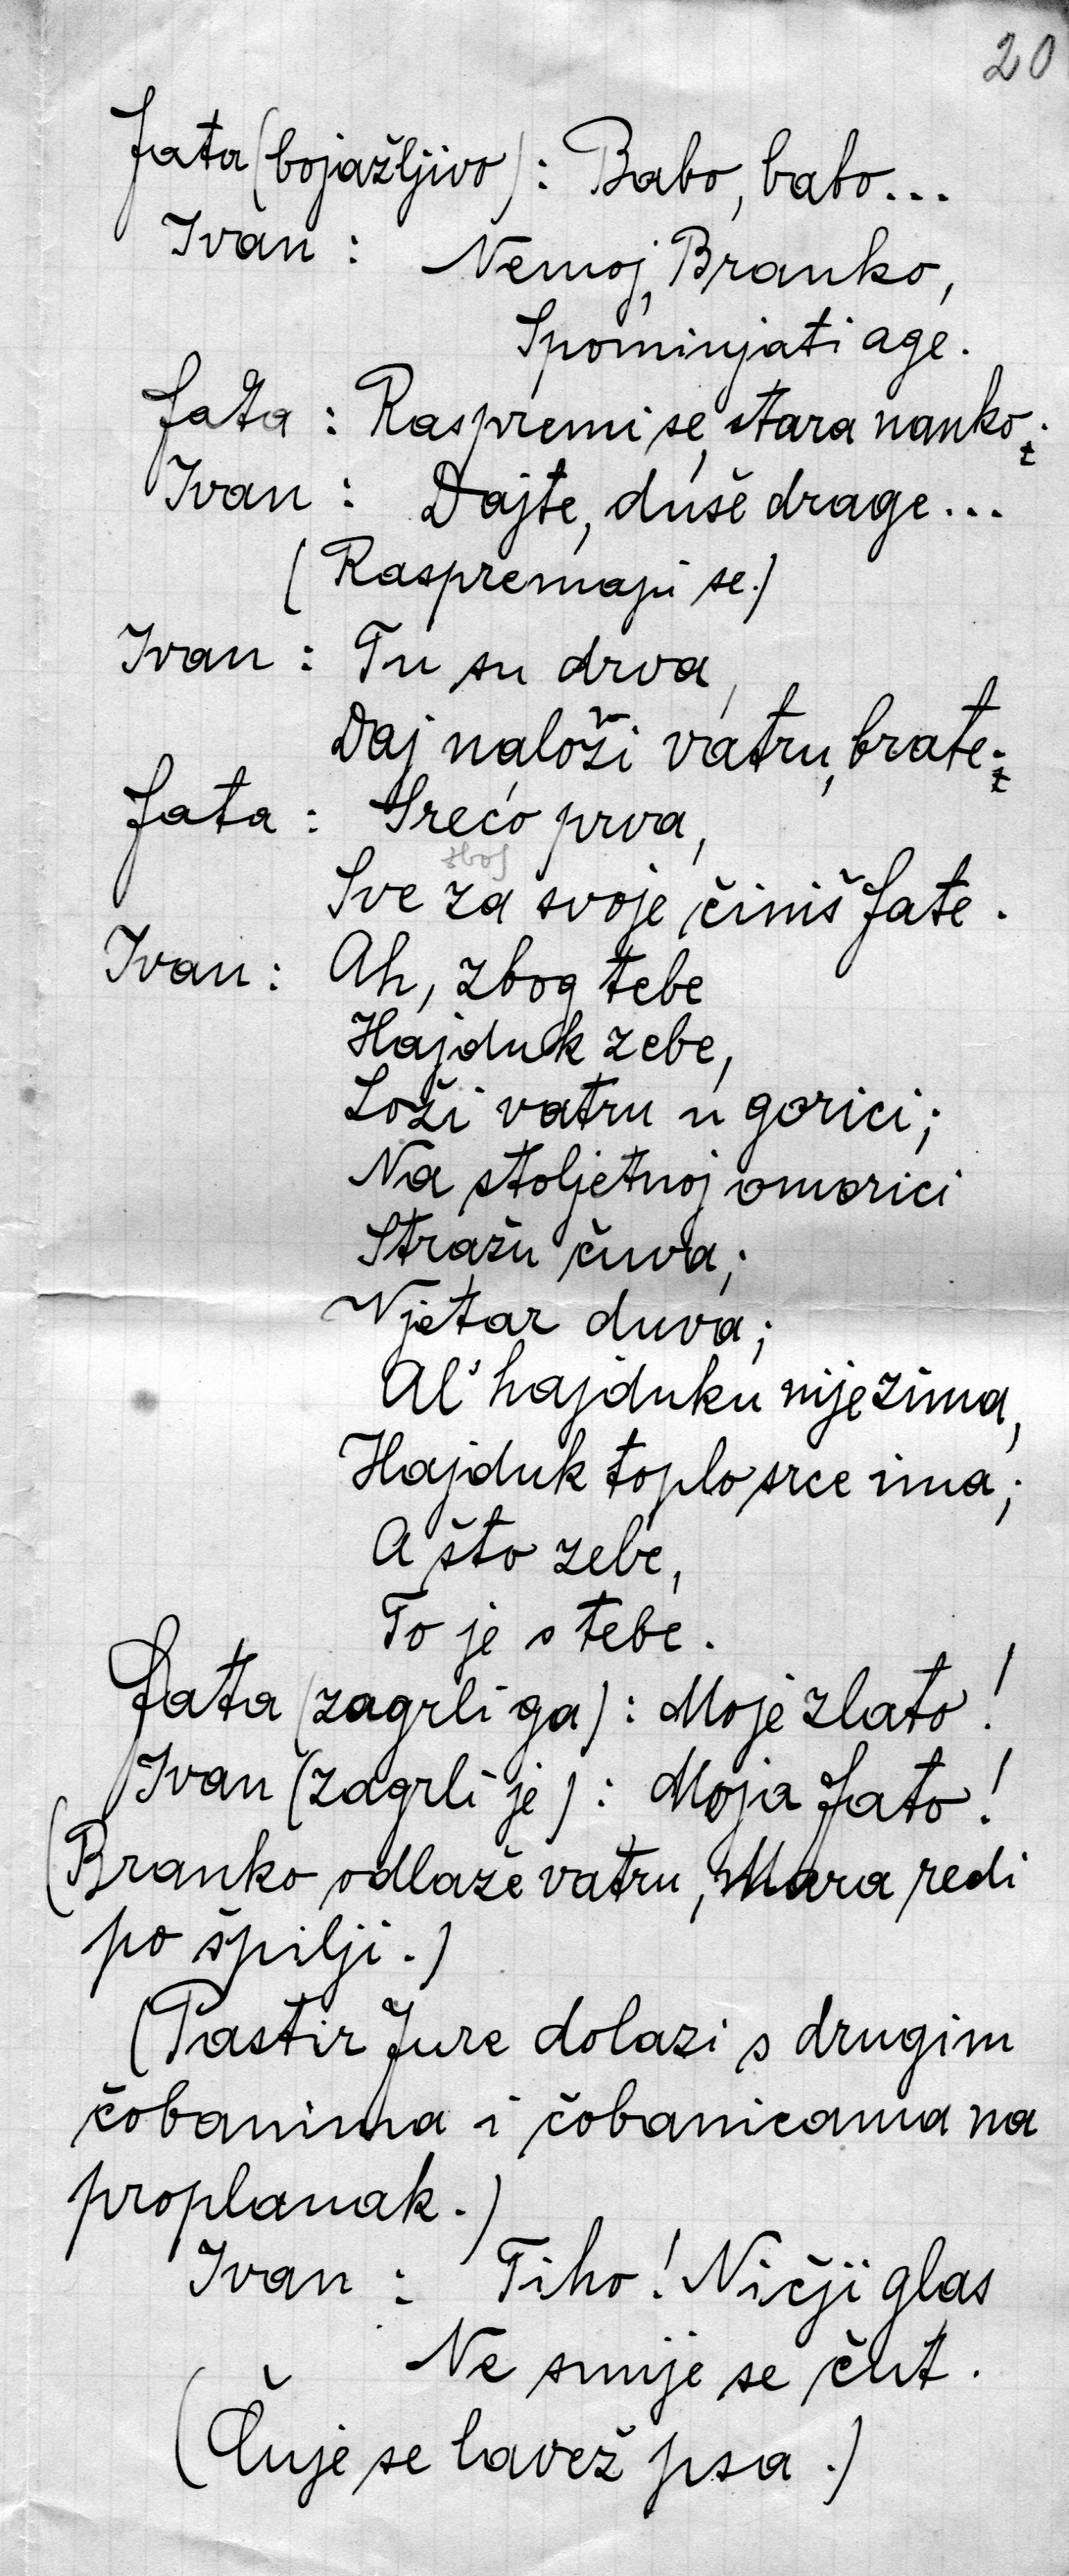 20
Fata (bojažljivo): Babo, babo...
Ivan: Nemoj, Branko,
Spominjati age.
Fata: Raspremi se, stara nanko.
Ivan: Dajte, duše drage...
(Raspremaju se.)
Ivan: Tu su drva,
Daj naloži vatru, brate.
Fata: Srećo prva,
zbog
Sve za svoje činiš Fate.
Ivan: Ah, zbog tebe
Hajduk zebe,
Loži vatru u gorici;
Na stoljetnoj omorici
Stražu čuva;
Vjetar duva;
Al' hajduku nije zima,
Hajduk toplo srce ima;
A što zebe,
To je s tebe.
Fata (zagrli ga): Moje zlato!
Ivan (zagrli je): Moja Fato!
(Branko odlaže vatru, Mara redi
po špilji.)
(Pastir Jure dolazi s drugim
čobanima i čobanicama na
proplanak.)
Ivan: Tiho! Ničji glas
Ne smije se čut.
(Čuje se lavež psa.)